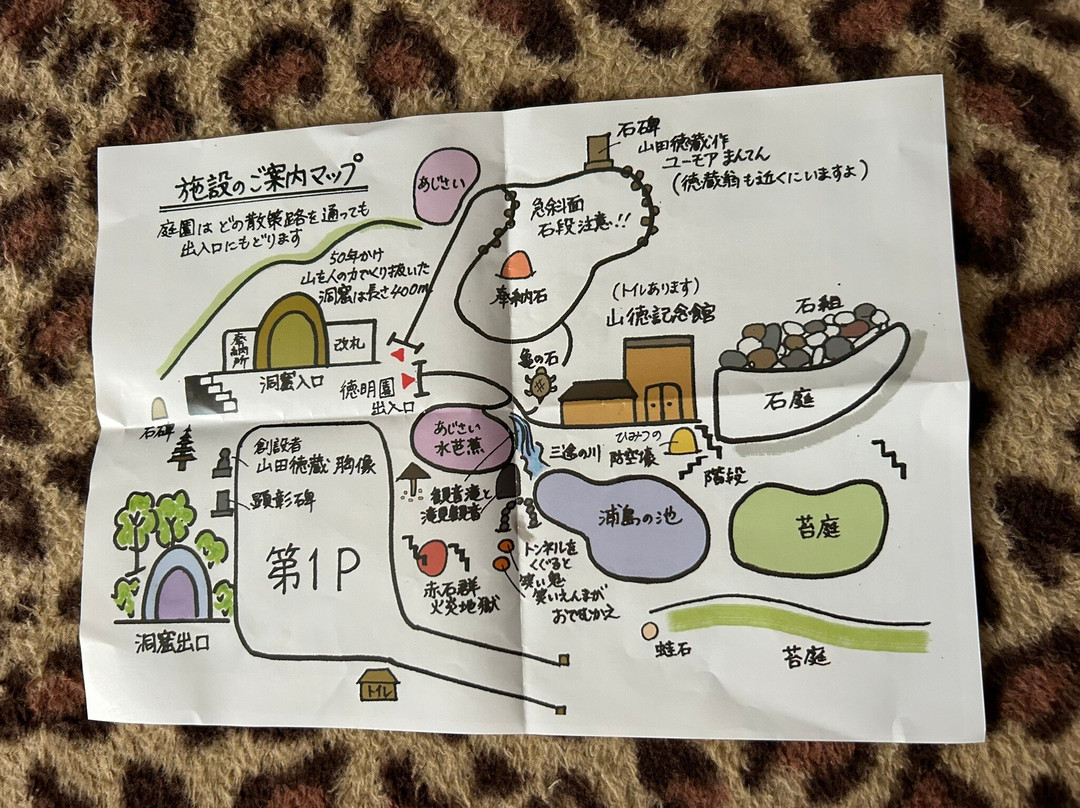 施設のご案内マップ
庭園はどの散策路を通っても
出入口にもどります
あじさい
石碑
山田徳蔵作
ユーモアまんてん
(徳蔵翁も近くにいますよ)
急斜面
石段注意!!
奉納石
50年かけ
山を人の力でくり抜いた
洞窟は長さ400m
奉納所
改札
洞窟入口
徳明園
出入口
(トイレあります)
山徳記念館
亀の石
石組
石庭
石碑
創設者
山田徳蔵胸像
顕彰碑
第1P
洞窟出口
トイレ
あじさい
水芭蕉
観音滝と
滝見観音
赤石群
火炎地獄
三途の川
ひみつの
防空壕
階段
浦島の池
苔庭
トンネルを
くぐると
笑い鬼
笑いえんまが
おでむかえ
蛙石
苔庭